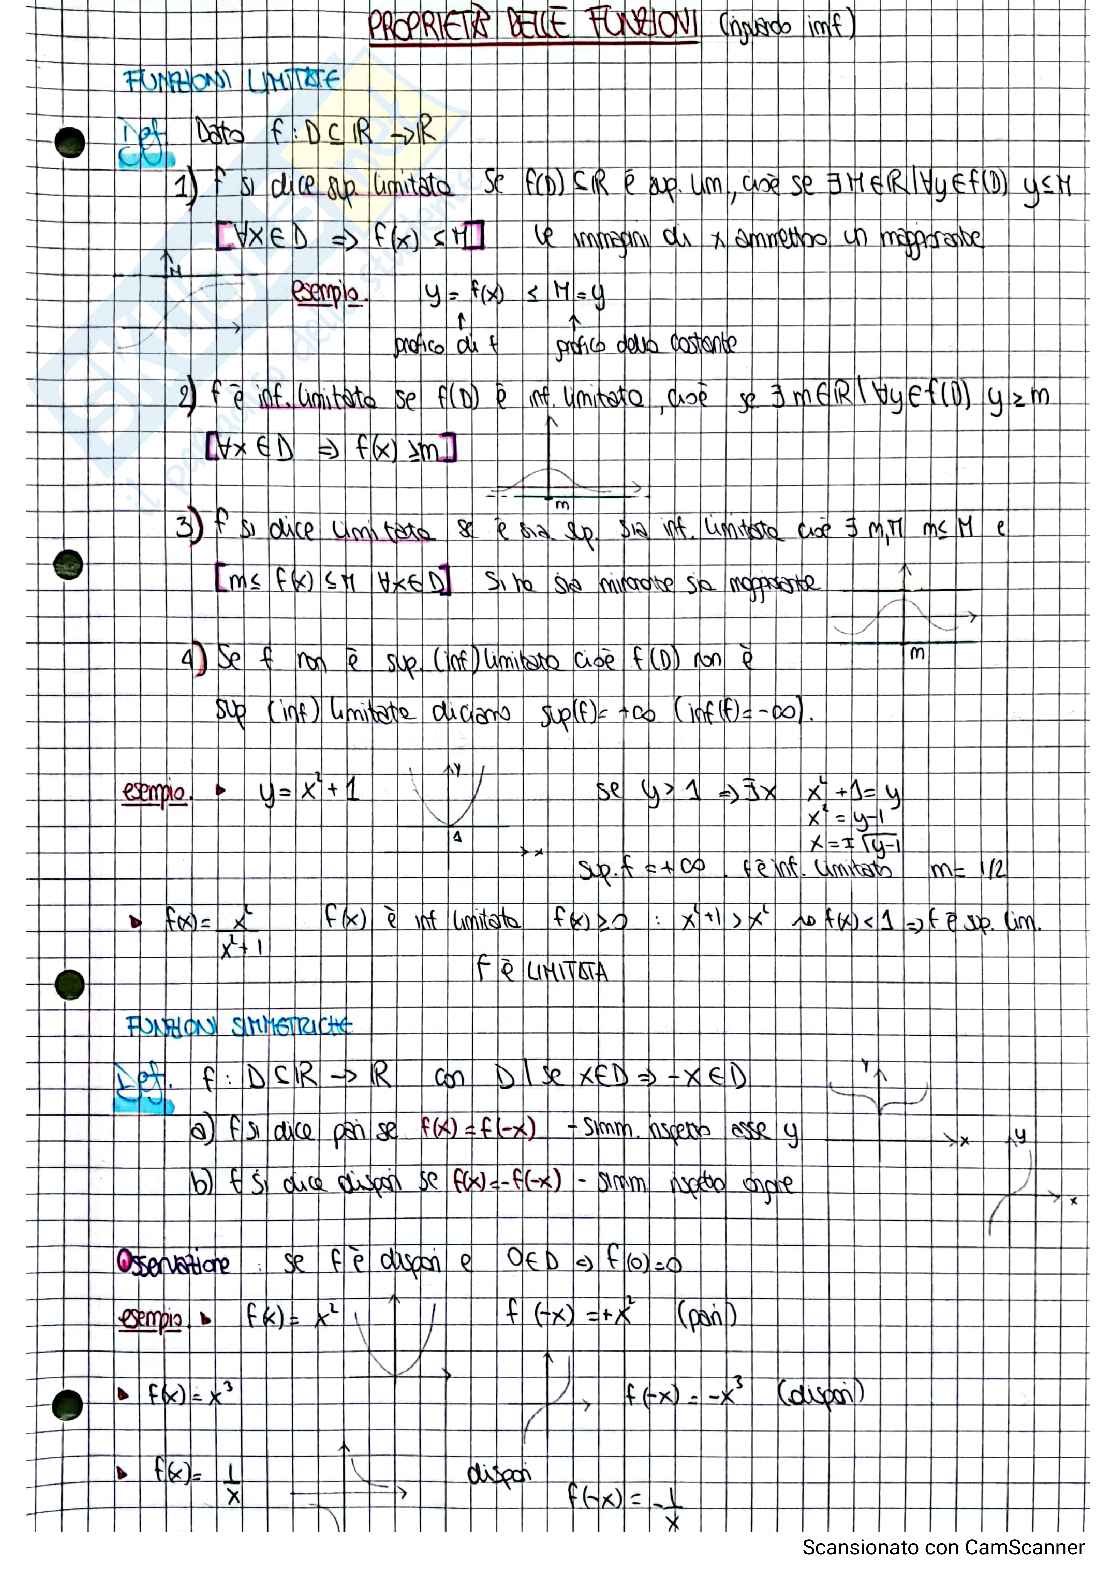 PROPRIETÀ DELLE FUNZIONI (riguardo imf)
FUNZIONI LIMITATE
Def. Data f: D ⊆ ℝ → ℝ
1) f si dice sup. limitata se f(D) ⊆ ℝ è sup. lim., cioè se ∃ M ∈ ℝ | ∀y ∈ f(D) y ≤ M
[∀x ∈ D ⇒ f(x) ≤ M] le immagini di x ammettono un maggiorante
M
esempio. y = f(x) ≤ M = y
↑ ↑
grafico di f grafico della costante
2) f è inf. limitata se f(D) è inf. limitata, cioè se ∃ m ∈ ℝ | ∀y ∈ f(D) y ≥ m
[∀x ∈ D ⇒ f(x) ≥ m]
m
3) f si dice limitata se è sia sup. sia inf. limitata cioè ∃ m, M m ≤ M e
[m ≤ f(x) ≤ M ∀x ∈ D] si ha sia minorante sia maggiorante
m
4) Se f non è sup. (inf) limitata cioè f(D) non è
sup (inf) limitata diciamo sup(f) = +∞ (inf(f) = -∞).
esempio. ▸ y = x² + 1 y se y > 1 ⇒ ∃x x² + 1 = y
x² = y - 1
1 x = ± √y-1
x
sup. f = +∞. f è inf. limitata m = 1/2
▸ f(x) = x²/(x² + 1) f(x) è inf limitata f(x) ≥ 0 : x² + 1 > x² ⇝ f(x) < 1 ⇒ f è sup. lim.
f è LIMITATA
FUNZIONI SIMMETRICHE
Def. f: D ⊆ ℝ → ℝ con D | se x ∈ D ⇒ -x ∈ D
y
a) f si dice pari se f(x) = f(-x) - simm. rispetto asse y
x y
b) f si dice dispari se f(x) = -f(-x) - simm rispetto origine
x
Osservazione: se f è dispari e 0 ∈ D ⇒ f(0) = 0
esempio. ▸ f(x) = x² f(-x) = +x² (pari)
▸ f(x) = x³ f(-x) = -x³ (dispari)
▸ f(x) = 1/x dispari
f(-x) = -1/x
Scansionato con CamScanner